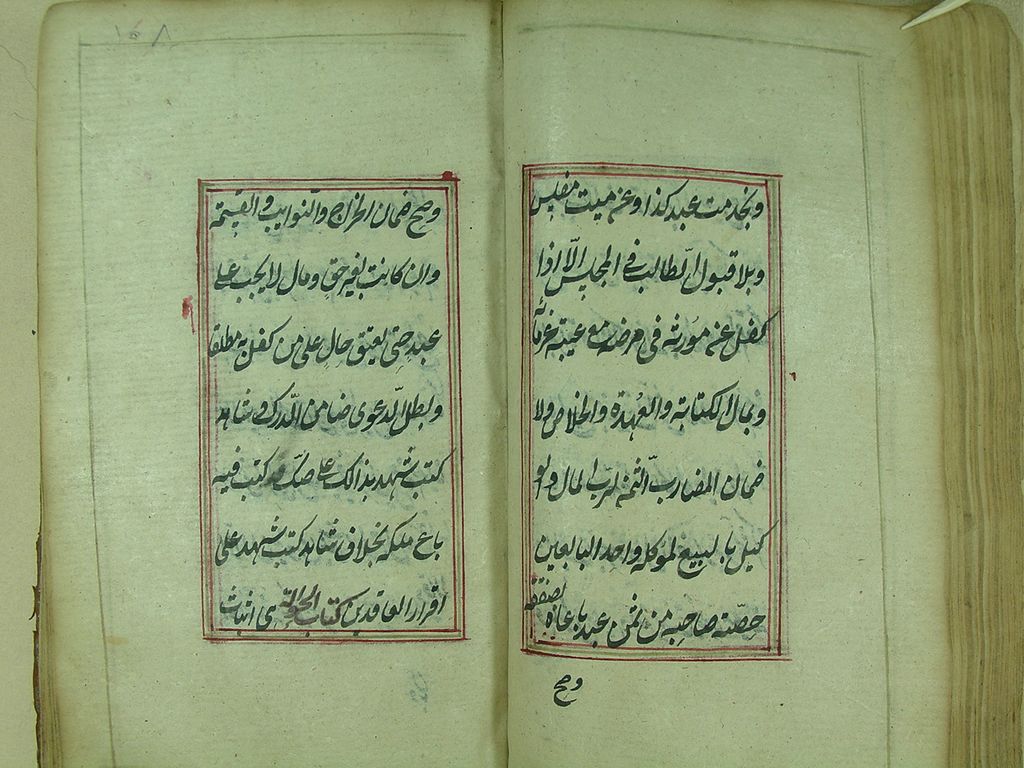 وبخدمت عبد كذا وعن ميت مفلس
وبلا قبول الطالب في المجلس الّا اذا
كفل عن مورثه في مرضه مع غيبة غرمائه
وبمال الكتابة والعُهدة والخلاص ولا
ضمان المضارب الثمن لرب المال والو
كيل بالبيع لموكله واحد البايعين
حصّة صاحبه من ثمن عبد باعاه بصفقة
وصح
١٥٨
وصح ضمان الخراج والنوايب والقسمة
وان كانت بغير حق ومال لا يجب على
عبد حتى يعتق حال على من كفل به مطلقا
وبطل الدعوى ضامن الدرك وشاهد
كتب شهد بذالك على صك كتب فيه
باع ملكه بخلاف شاهد كتب شهد على
اقرار العاقدين كتاب الحوالة ى اثبات